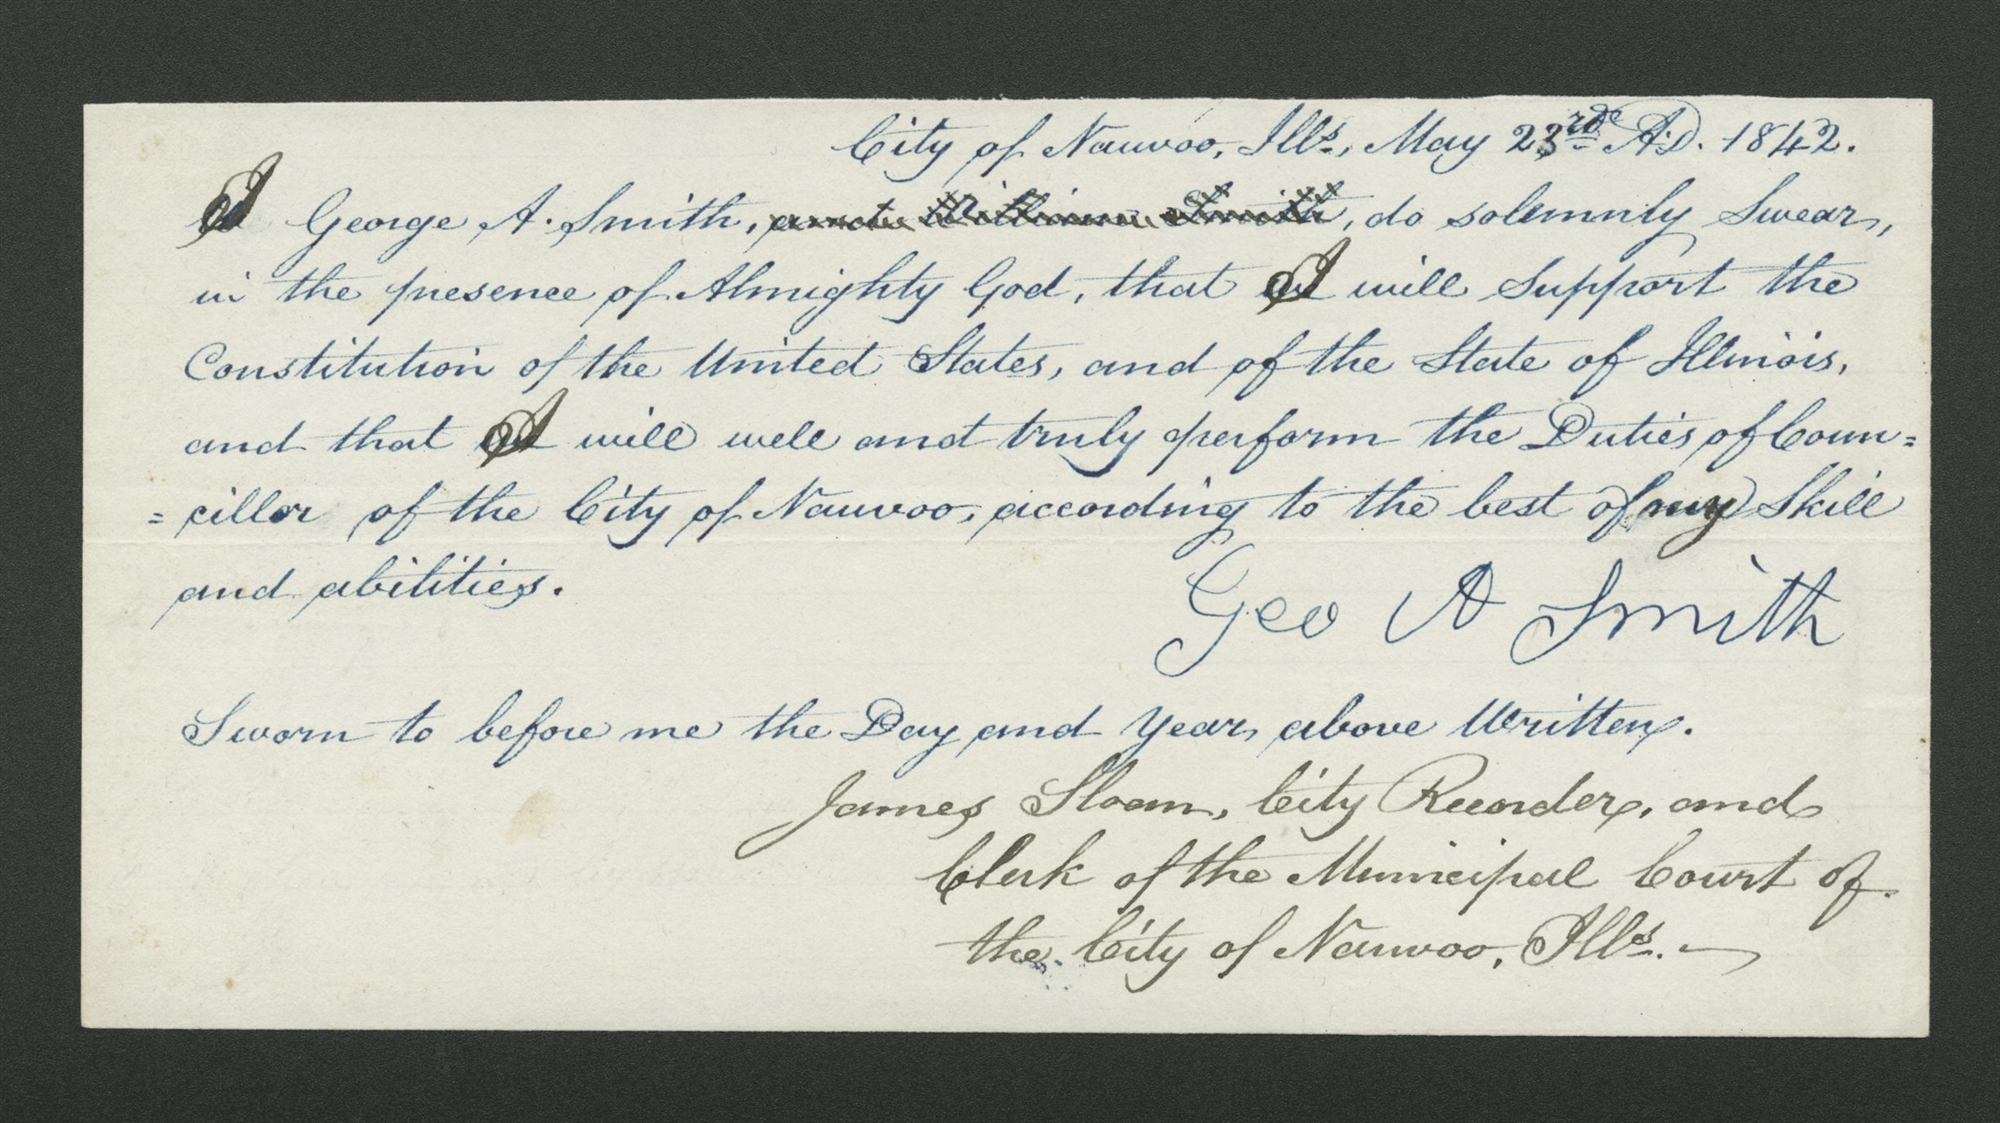 City of Nauvoo, Ills, May 23rd A.D. 1842.
I George A. Smith, and William Smith, do solemnly Swear,
in the presence of Almighty God, that I will Support the
Constitution of the United States, and of the State of Illinois,
and that I will well and truly perform the Duties of Coun=
=cillor of the City of Nauvoo, according to the best of my Skill
and abilities.
Geo A Smith
Sworn to before me the Day and Year, above Written.
James Sloan, City Recorder, and
Clerk of the Municipal Court of
the City of Nauvoo, Ills.